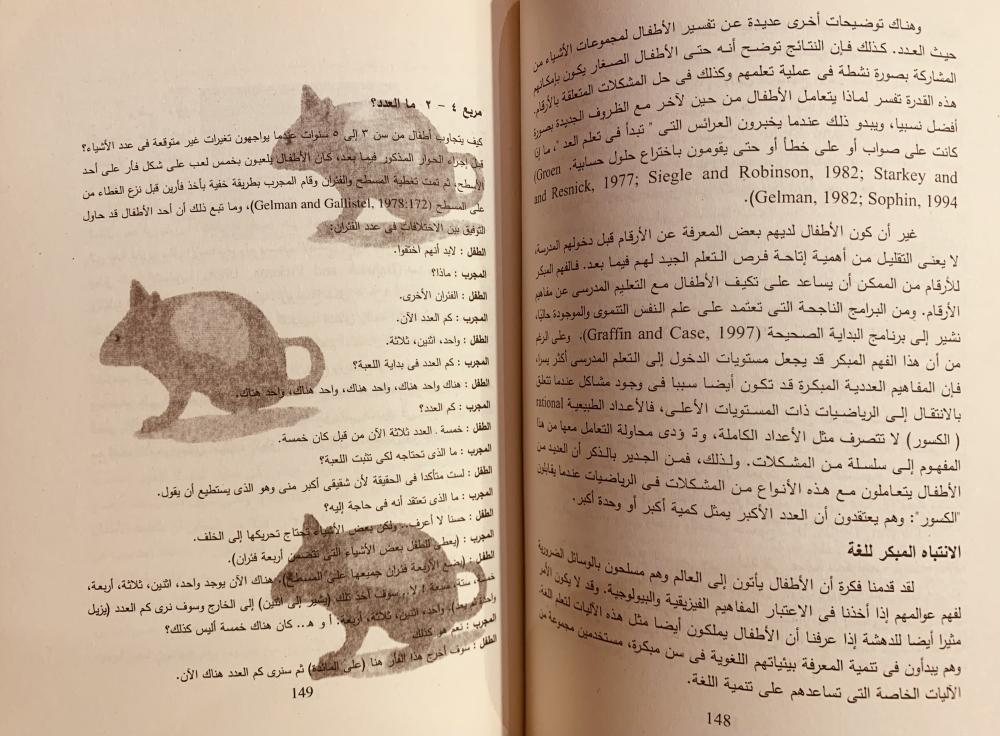 وهناك توضيحات أخرى عديدة عن تفسير الأطفال لمجموعات الأشياء من
حيث العدد. كذلك فإن النتائج توضح أنه حتى الأطفال الصغار يكون بإمكانهم
المشاركة بصورة نشطة فى عملية تعلمهم وكذلك فى حل المشكلات المتعلقة بالأرقام.
هذه القدرة تفسر لماذا يتعامل الأطفال من حين لآخر مع الظروف الجديدة بصورة
أفضل نسبيا، ويبدو ذلك عندما يخبرون العرائس التى " تبدأ فى تعلم العد "، ما إذا
كانت على صواب أو على خطأ أو حتى يقومون باختراع حلول حسابية. (Groen
and Resnick, 1977; Siegle and Robinson, 1982; Starkey and
Gelman, 1982; Sophin, 1994).
غير أن كون الأطفال لديهم بعض المعرفة عن الأرقام قبل دخولهم المدرسة،
لا يعنى التقليل من أهمية إتاحة فرص التعلم الجيد لهم فيما بعد. فالفهم المبكر
للأرقام من الممكن أن يساعد على تكيف الأطفال مع التعليم المدرسى عن مفاهيم
الأرقام. ومن البرامج الناجحة التى تعتمد على علم النفس التنموى والموجودة حاليا،
نشير إلى برنامج البداية الصحيحة (Graffin and Case, 1997). وعلى الرغم
من أن هذا الفهم المبكر قد يجعل مستويات الدخول إلى التعلم المدرسى أكثر يسرا،
فإن المفاهيم العددية المبكرة قد تكون أيضا سببا فى وجود مشاكل عندما تتعلق
بالانتقال إلى الرياضيات ذات المستويات الأعلى، فالأعداد الطبيعية rational
( الكسور ) لا تتصرف مثل الأعداد الكاملة، وتؤدى محاولة التعامل معها من هذا
المفهوم إلى سلسلة من المشكلات. ولذلك، فمن الجدير بالذكر أن العديد من
الأطفال يتعاملون مع هذه الأنواع من المشكلات فى الرياضيات عندما يقابلون
"الكسور": وهم يعتقدون أن العدد الأكبر يمثل كمية أكبر أو وحدة أكبر.
الانتباه المبكر للغة
لقد قدمنا فكرة أن الأطفال يأتون إلى العالم وهم مسلحون بالوسائل الضرورية
لفهم عوالمهم إذا أخذنا فى الاعتبار المفاهيم الفيزيقية والبيولوجية. وقد لا يكون الأمر
مثيرا أيضا للدهشة إذا عرفنا أن الأطفال يملكون أيضا مثل هذه الآليات لتعلم اللغة.
وهم يبدأون فى تنمية المعرفة ببيئاتهم اللغوية فى سن مبكرة، مستخدمين مجموعة من
الآليات الخاصة التى تساعدهم على تنمية اللغة.
148
مربع ٤ – ٢ ما العدد؟
كيف يتجاوب أطفال من سن ٣ إلى ٥ سنوات عندما يواجهون تغيرات غير متوقعة فى عدد الأشياء؟
قبل إجراء الحوار المذكور فيما بعد، كان الأطفال يلعبون بخمس لعب على شكل فأر على أحد
الأسطح، ثم تمت تغطية المسطح والفئران وقام المجرب بطريقة خفية بأخذ فأرين قبل نزع الغطاء من
على المسطح (Gelman and Gallistel, 1978:172)، وما تبع ذلك أن أحد الأطفال قد حاول
التوفيق بين الاختلافات فى عدد الفئران:
الطفل : لابد أنهم اختفوا.
المجرب : ماذا؟
الطفل : الفئران الأخرى.
المجرب : كم العدد الآن.
الطفل : واحد، اثنين، ثلاثة.
المجرب : كم العدد فى بداية اللعبة؟
الطفل : هناك واحد هناك، واحد هناك، واحد هناك، واحد هناك.
المجرب : كم العدد؟
الطفل : خمسة . العدد ثلاثة الآن من قبل كان خمسة.
المجرب : ما الذى تحتاجه لكى تثبت اللعبة؟
الطفل : لست متأكدا فى الحقيقة لأن شقيقى أكبر منى وهو الذى يستطيع أن يقول.
المجرب : ما الذى تعتقد أنه فى حاجة إليه؟
الطفل : حسنا لا أعرف.. ولكن بعض الأشياء تحتاج تحريكها إلى الخلف.
المجرب : (يعطى للطفل بعض الأشياء التى تتضمن أربعة فئران).
الطفل : (يضع الأربعة فئران جميعها على المسطح). هناك الآن يوجد واحد، اثنين، ثلاثة، أربعة،
خمسة، ستة، سبعة ! لا.. سوف آخذ تلك (يشير إلى اثنين) إلى الخارج وسوف نرى كم العدد (يزيل
واحدة ثم يعد)، واحد، اثنين، ثلاثة، أربعة. أ و هـ.. كان هناك خمسة أليس كذلك؟
المجرب : نعم هو كذلك
الطفل : سوف أخرج هذا الفأر هنا (على المائدة) ثم سنرى كم العدد هناك الآن.
149